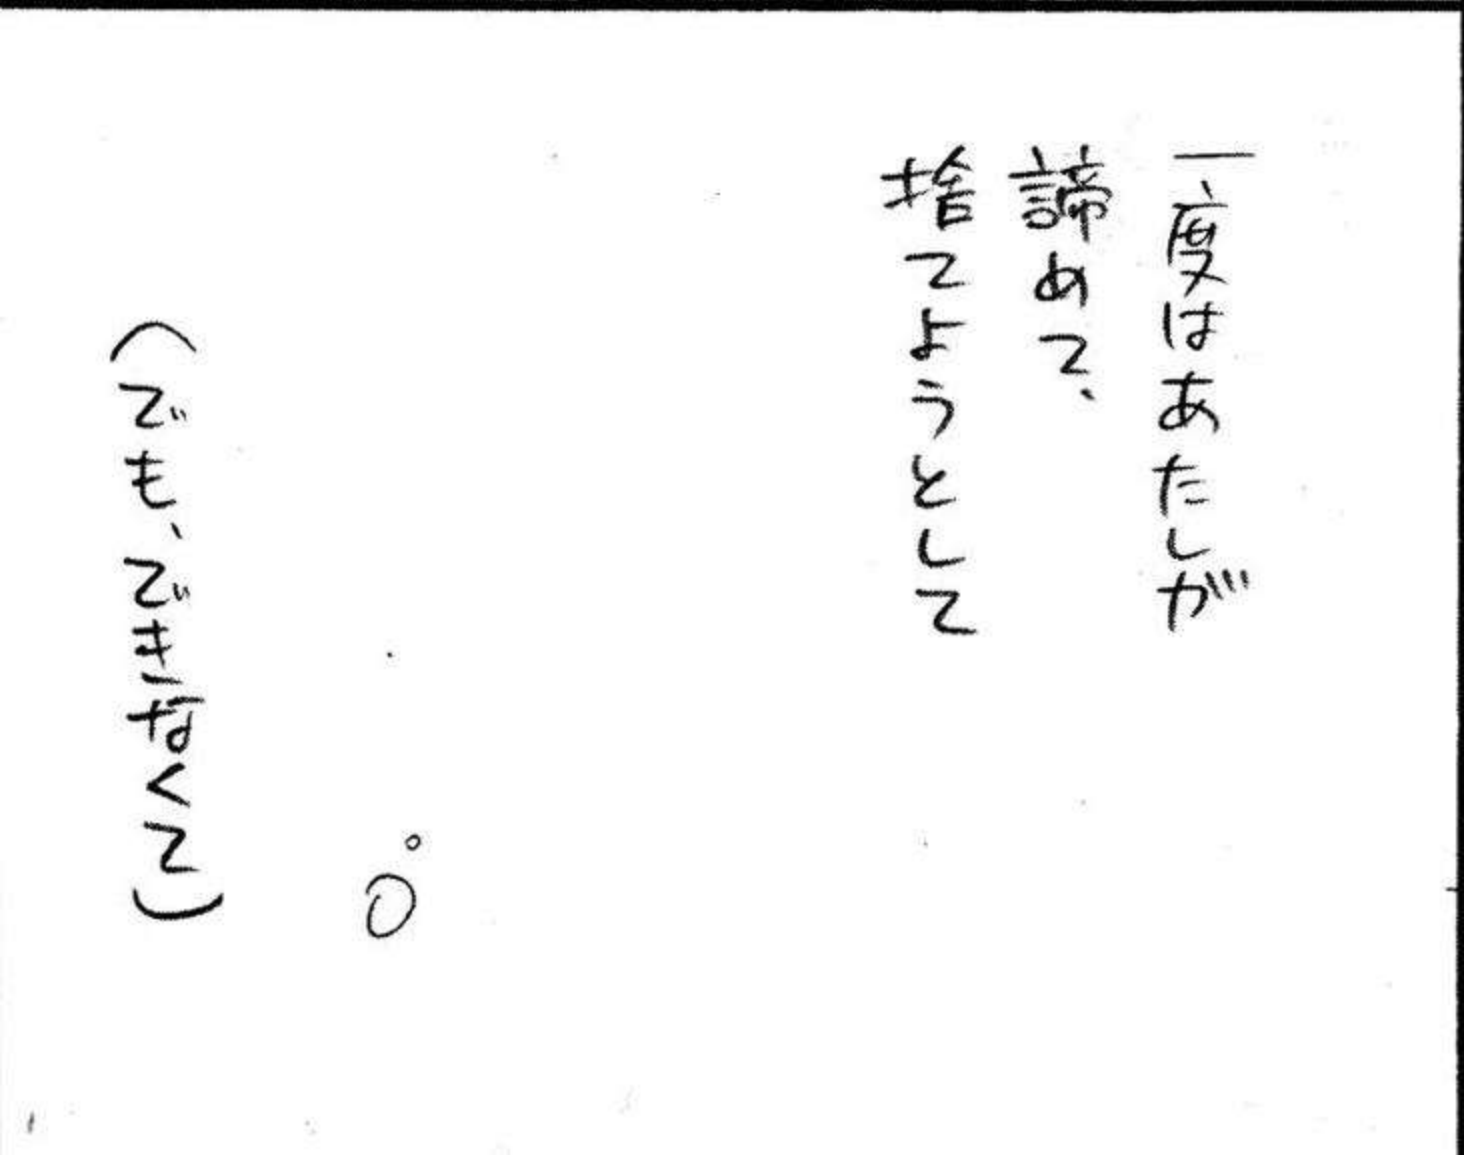 一度はあたしが
諦めて、
捨てようとして
(でも、できなくて)